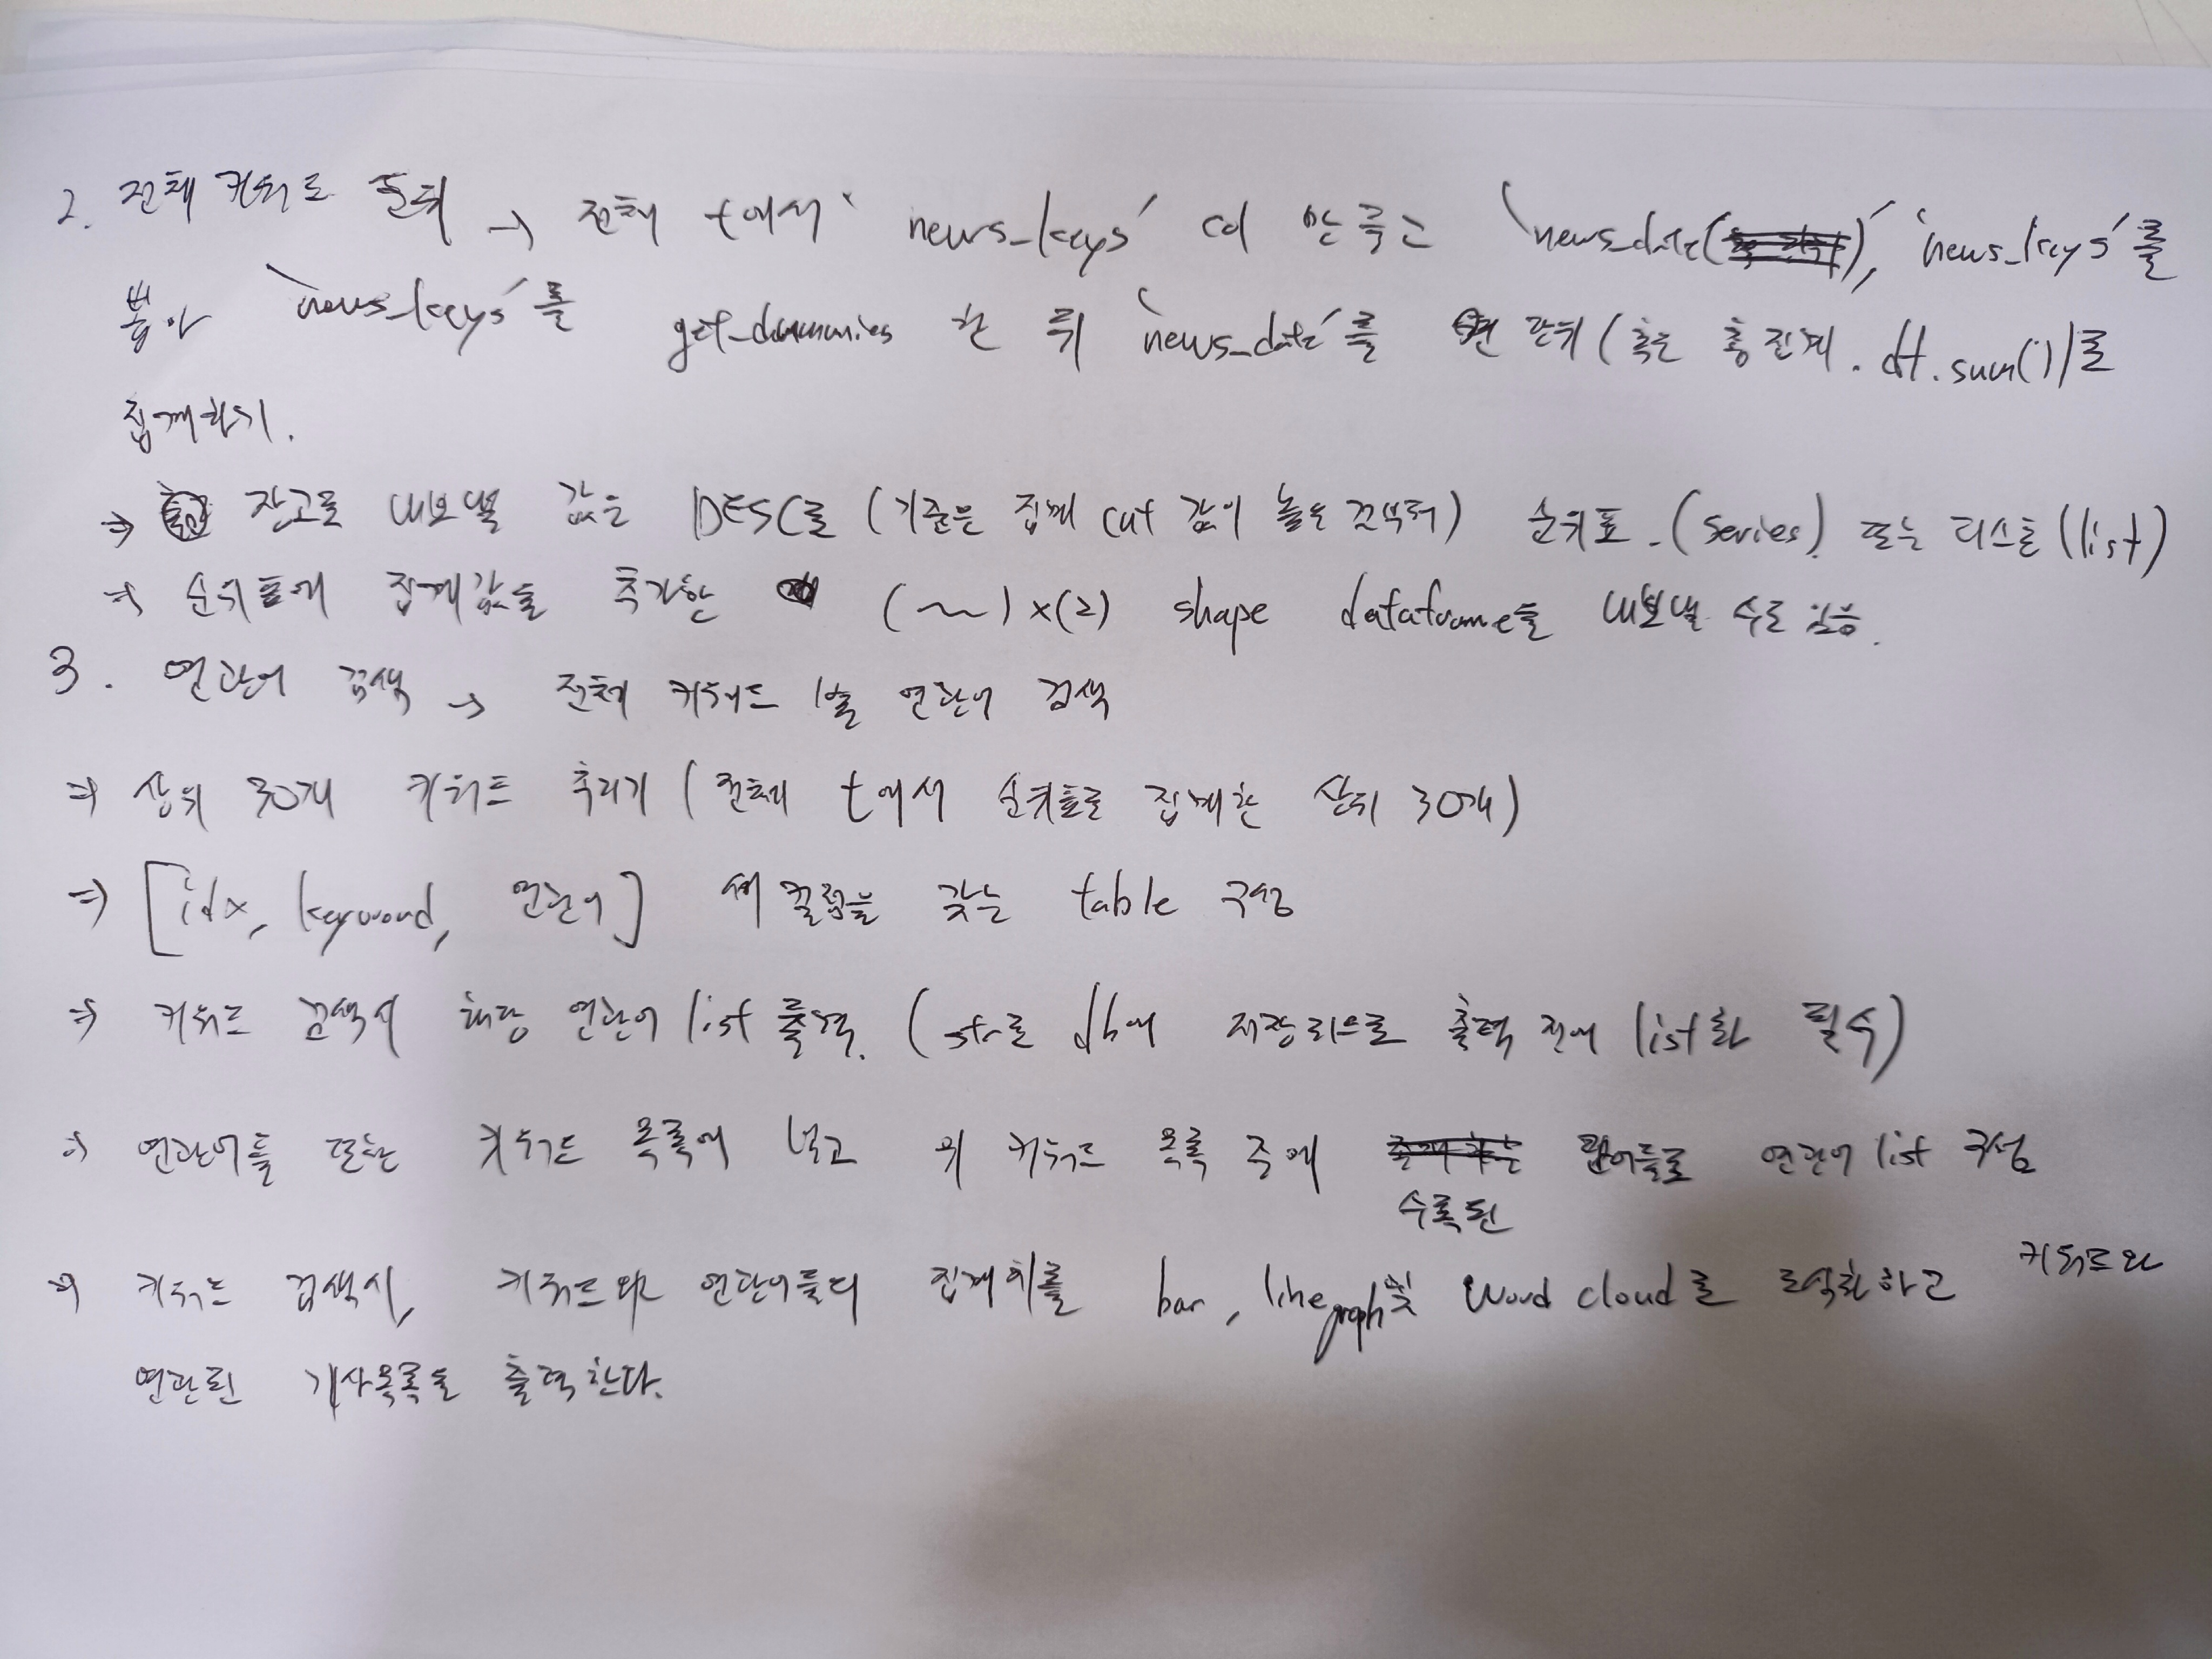 2. 전체 키워드 순위 → 전체 t에서 'news_keys' col 만 두고 'news_date( )', 'news_keys'를
뽑아 'news_keys'를 get_dummies 한 뒤 'news_date'를 연 단위 (혹은 총 집계. df.sum())로
집계하기.
⇒ 장고로 내보낼 값은 DESC로 (기준은 집계 cut 값이 높은 것부터) 순위표.(series). 또는 리스트(list)
⇒ 순위표에 집계값을 추가한 (~)×(2) shape dataframe을 내보낼 수도 있음.
3. 연관어 검색 → 전체 키워드 1월 연관어 검색
⇒ 상위 30개 키워드 추리기 (전체 t에서 순위표로 집계한 상위 30개)
⇒ [idx, keyword, 연관어] 세 컬럼을 갖는 table 구성
⇒ 키워드 검색시 해당 연관어 list 출력. (str로 db에 저장되므로 출력 전에 list화 필수)
⇒ 연관어들 또한 키워드 목록에 넣고 위 키워드 목록 중에 수록된 단어들로 연관어 list 구성
⇒ 키워드 검색시, 키워드와 연관어들의 집계치를 bar, line graph 및 word cloud로 도식화하고 키워드와
연관된 기사목록을 출력한다.